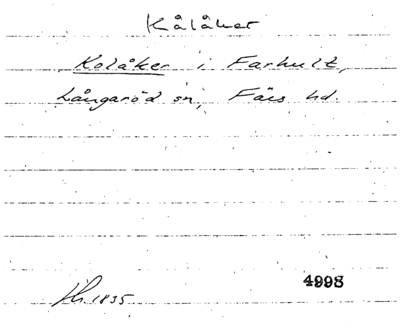 Kålåker
Kolåker i Farhult,
Långaröd sn, Färs hd.
1835
4998